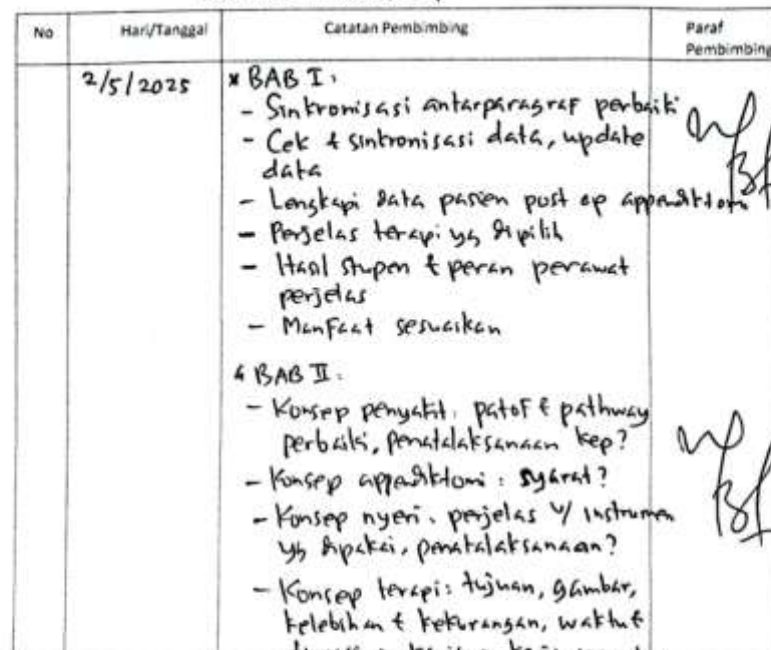 No Hari/Tanggal Catatan Pembimbing Paraf Pembimbing
2/5/2025 * BAB I :
- Sinkronisasi antarparagraf perbaiki
- Cek & sinkronisasi data, update
data
- Lengkapi data pasien post op appendiktomi
- Perjelas terapi yg dipilih
- Hasil stupen & peran perawat
perjelas
- Manfaat sesuaikan
& BAB II :
- Konsep penyakit : patof & pathway
perbaiki, penatalaksanaan kep?
- Konsep appendiktomi : syarat?
- Konsep nyeri : perjelas u/ instrumen
yg dipakai, penatalaksanaan?
- Konsep terapi : tujuan, gambar,
kelebihan & kekurangan, waktu &